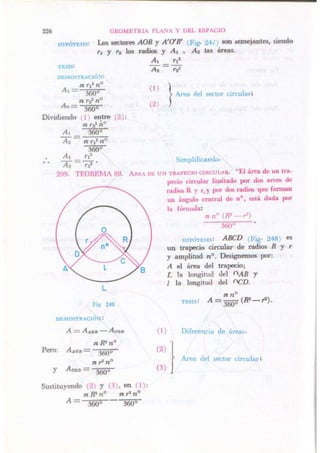 226 GEOMETRIA PLANA Y DEL ESPACIO
HIPÓTESIS: Los sectores AOB y A'O'B' (Fig. 247) son semejantes, siendo
r₁ y r₂ los radios y A₁ , A₂ las áreas.
TESIS: A₁/A₂ = r₁²/r₂²
DEMOSTRACIÓN:
A₁ = π r₁² n°/360° (1)
A₂ = π r₂² n°/360° (2)
} Area del sector circular;
Dividiendo (1) entre (2):
A₁/A₂ = (π r₁² n°/360°)/(π r₂² n°/360°)
∴ A₁/A₂ = r₁²/r₂². Simplificando.
299. TEOREMA 89. AREA DE UN TRAPECIO CIRCULAR. "El área de un tra-
pecio circular limitado por dos arcos de
radios R y r, y por dos radios que forman
un ángulo central de n°, está dada por
la fórmula:
π n° (R² — r²)/360° .
O
r
R
n°
D
C
A
l
B
L
Fig 248
HIPÓTESIS: ABCD (Fig- 248) es
un trapecio circular de radios R y r
y amplitud n°. Designemos por:
A el área del trapecio;
L la longitud del ⌒AB y
l la longitud del ⌒CD.
TESIS: A = π n°/360° (R² — r²).
DEMOSTRACIÓN:
A = A_AOB — A_COD (1) Diferencia de áreas.
Pero: A_AOB = π R² n°/360° (2)
y A_COD = π r² n°/360° (3)
} Area del sector circular;
Sustituyendo (2) y (3), en (1):
A = π R² n°/360° — π r² n°/360°